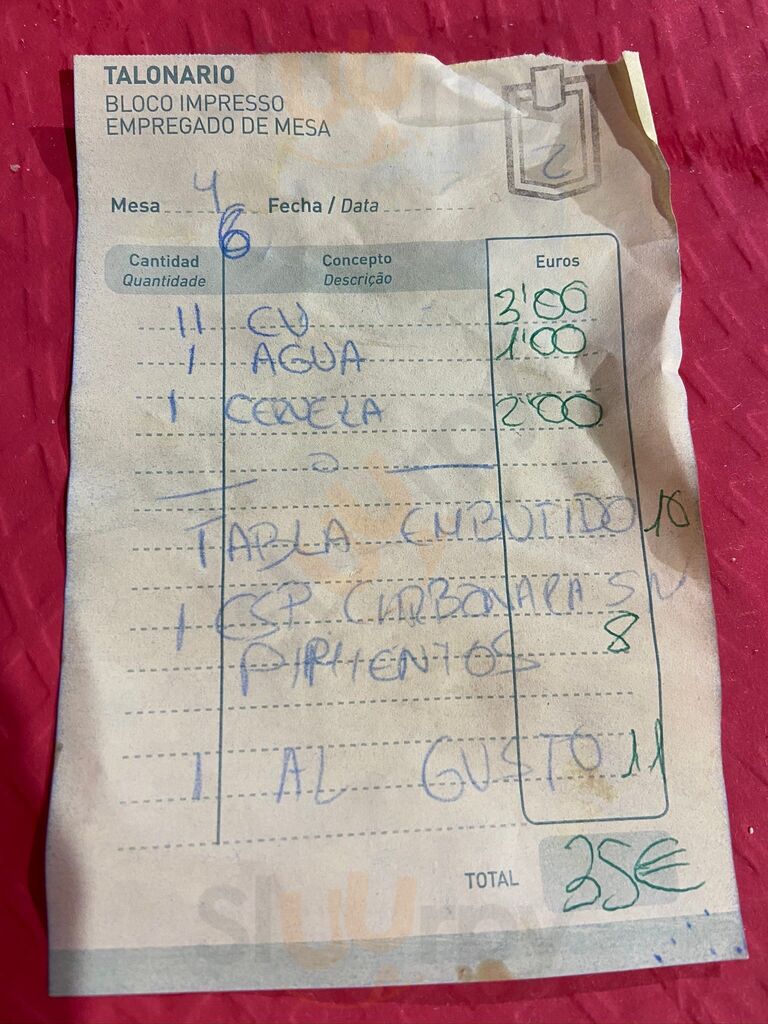 TALONARIO
BLOCO IMPRESSO
EMPREGADO DE MESA
2
Mesa 4 Fecha / Data
6
Cantidad Concepto Euros
Quantidade Descrição
11 CV 3'00
1 AGUA 1'00
1 CERVEZA 2'00
TABLA EMBUTIDO 10
1 ESP CARBONARA SN
PIMIENTOS 8
1 AL GUSTO 11
TOTAL 35€
Sluurpy